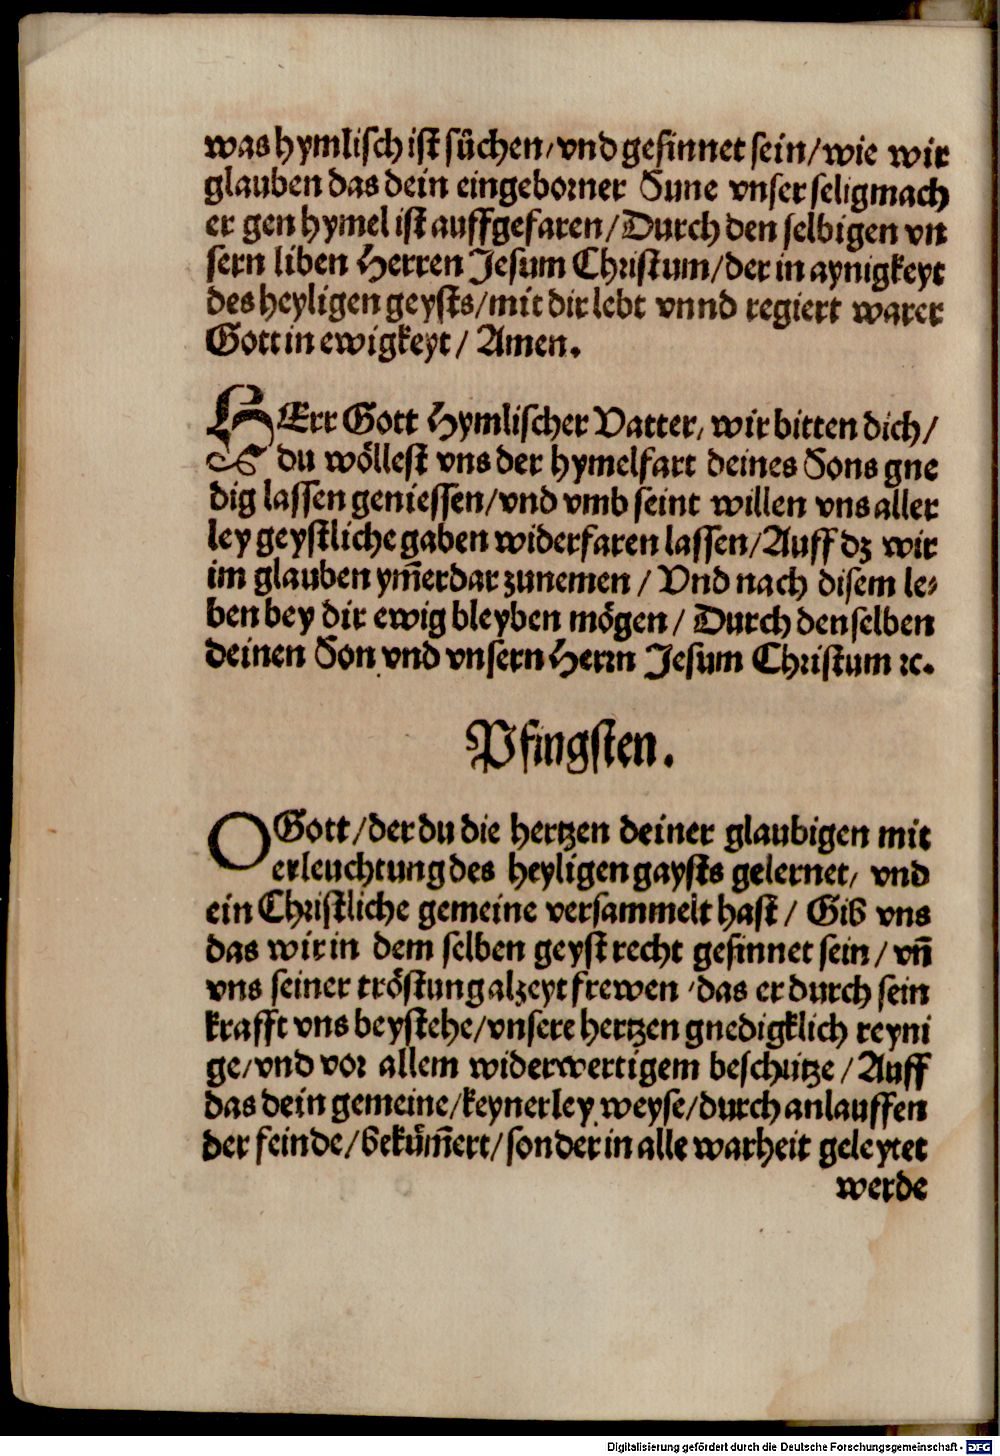 was hymlisch ist sůchen/ vnd gesinnet sein/ wie wir
glauben das dein eingeborner Sune vnser seligmach
er gen hymel ist auffgefaren/ Durch den selbigen vn
sern liben Herren Jesum Christum/ der in aynigkeyt
des heyligen geysts/ mit dir lebt vnnd regiert warer
Gott in ewigkeyt/ Amen.
HErr Gott Hymlischer Vatter, wir bitten dich/
du wöllest vns der hymelfart deines Sons gne
dig lassen geniessen/ vnd vmb seint willen vns aller
ley geystliche gaben widerfaren lassen/ Auff dz wir
im glauben ym̄erdar zunemen/ Vnd nach disem le⸗
ben bey dir ewig bleyben mögen/ Durch denselben
deinen Son vnd vnsern Herrn Jesum Christum ꝛc.
Pfingsten.
O Gott/ der du die hertzen deiner glaubigen mit
erleuchtung des heyligen gaysts gelernet/ vnd
ein Christliche gemeine versammelt hast/ Gib vns
das wir in dem selben geyst recht gesinnet sein/ vn̄
vns seiner tröstung alzeyt frewen/ das er durch sein
krafft vns beystehe/ vnsere hertzen gnedigklich reyni
ge/ vnd vor allem widerwertigem beschütze/ Auff
das dein gemeine/ keynerley weyse/ durch anlauffen
der feinde/ bekům̄ert/ sonder in alle warheit geleytet
werde
Digitalisierung gefördert durch die Deutsche Forschungsgemeinschaft - DFG